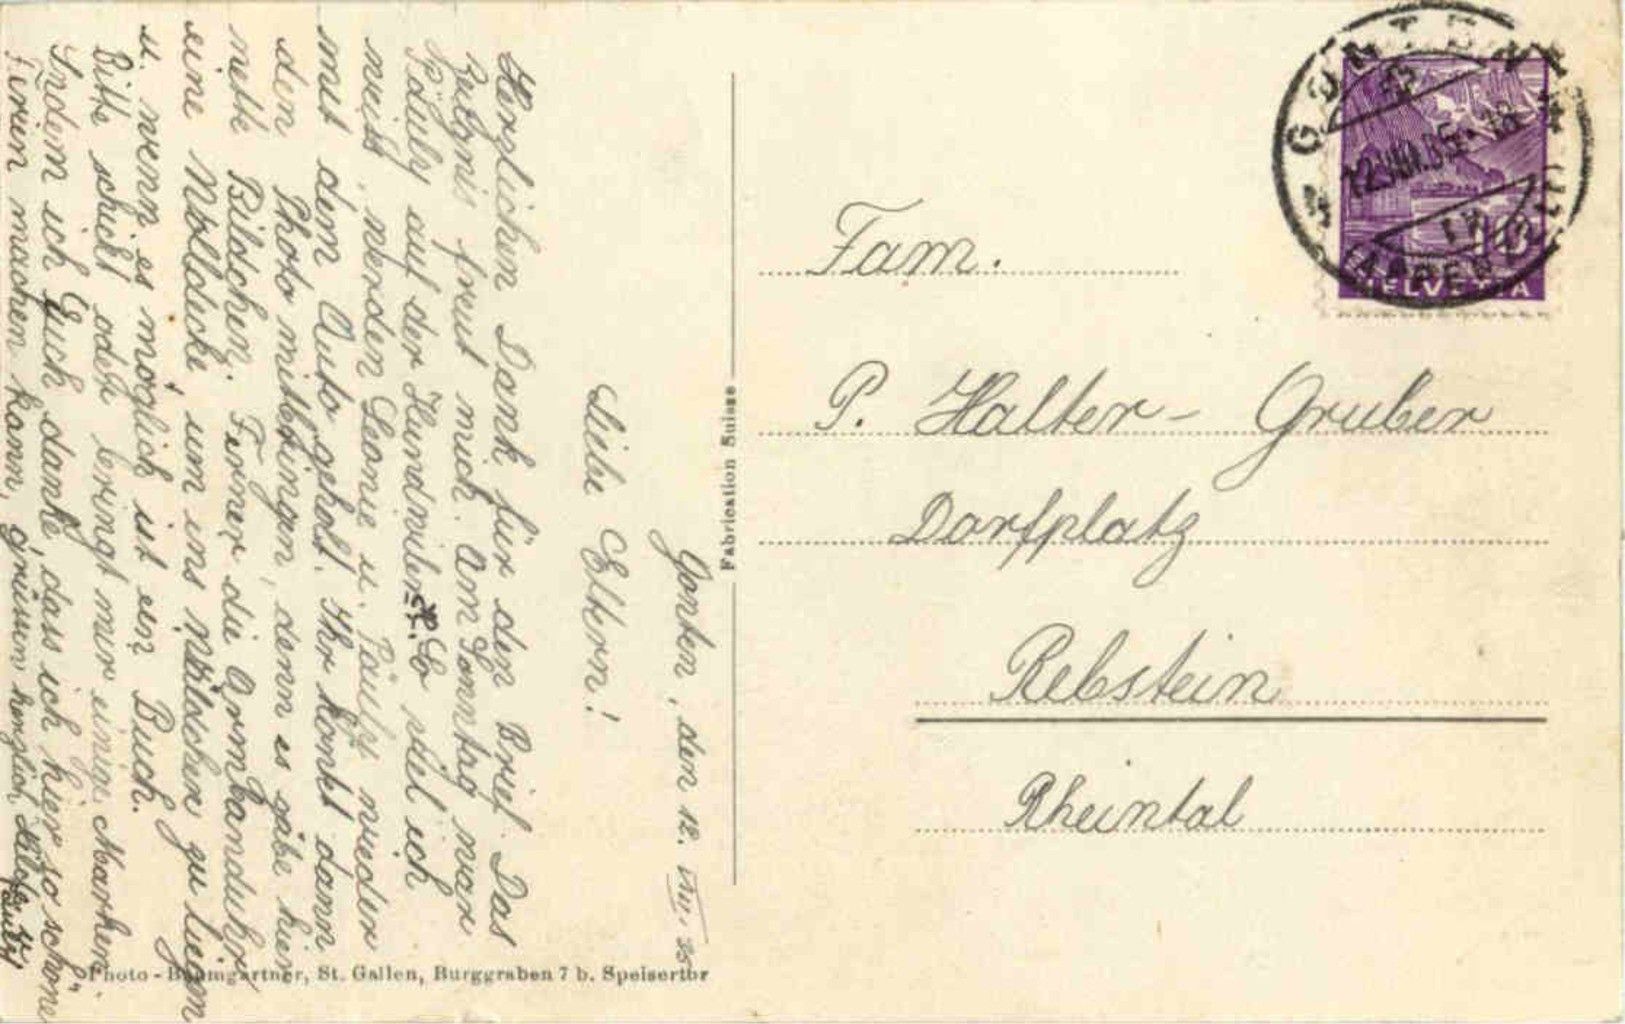 Gonten, den 12. VIII. 35
Liebe Eltern!
Herzlichen Dank für den Brief. Das
Zeugnis freut mich. Am Sonntag war
Pauly auf der Hundwiler H. So viel ich
weiss, werden Leonie u. Pauly wieder
mit dem Auto geholt. Ihr könnt dann
den Photo mitbringen, denn es gäbe hier
nette Bildchen. Ferner die Armbanduhr
eine Wolldecke, um ins Wäldchen zu liegen
u. wenn es möglich ist ein Buch.
Bitte schickt oder bringt mir einige Marken.
Indem ich Euch danke, dass ich hier so schöne
Ferien machen kann, grüssen herzlich
Fam.
P. Halter-Gruber
Dorfplatz
Rebstein
Rheintal
GONTEN
12.VIII.35-18
(APPENZELL)
HELVETIA
Fabrication Suisse
Photo-Baumgartner, St. Gallen, Burggraben 7 b. Speisertor